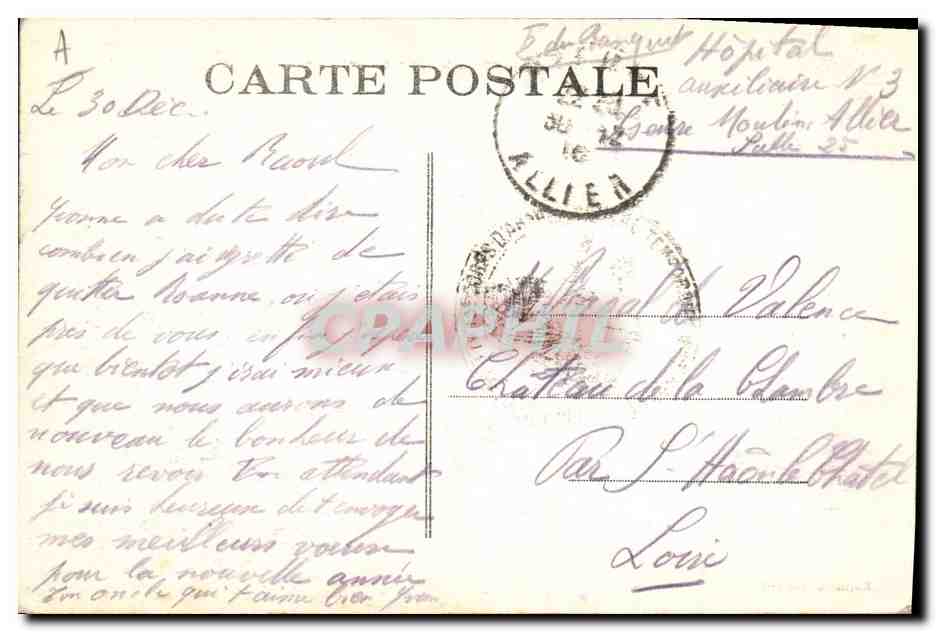 A
CARTE POSTALE
Hôpital
auxiliaire N 3
Yzeure Moulins Allier
Salle 25
ALLIER
Le 30 Déc.
Mon cher Raoul
Yvonne a du te dire
combien j'ai regretté de
quitter Roanne ou j'étais
près de vous
que bientot j'irai mieux
et que nous aurons de
nouveau le bonheur de
nous revoir En attendant
je suis heureux de t'envoyer
mes meilleurs voeux
pour la nouvelle année
Ton oncle qui t'aime bien
de Valence
Chateau de la Chambre
Par St Haon le Chatel
Loire
CPAPHIL